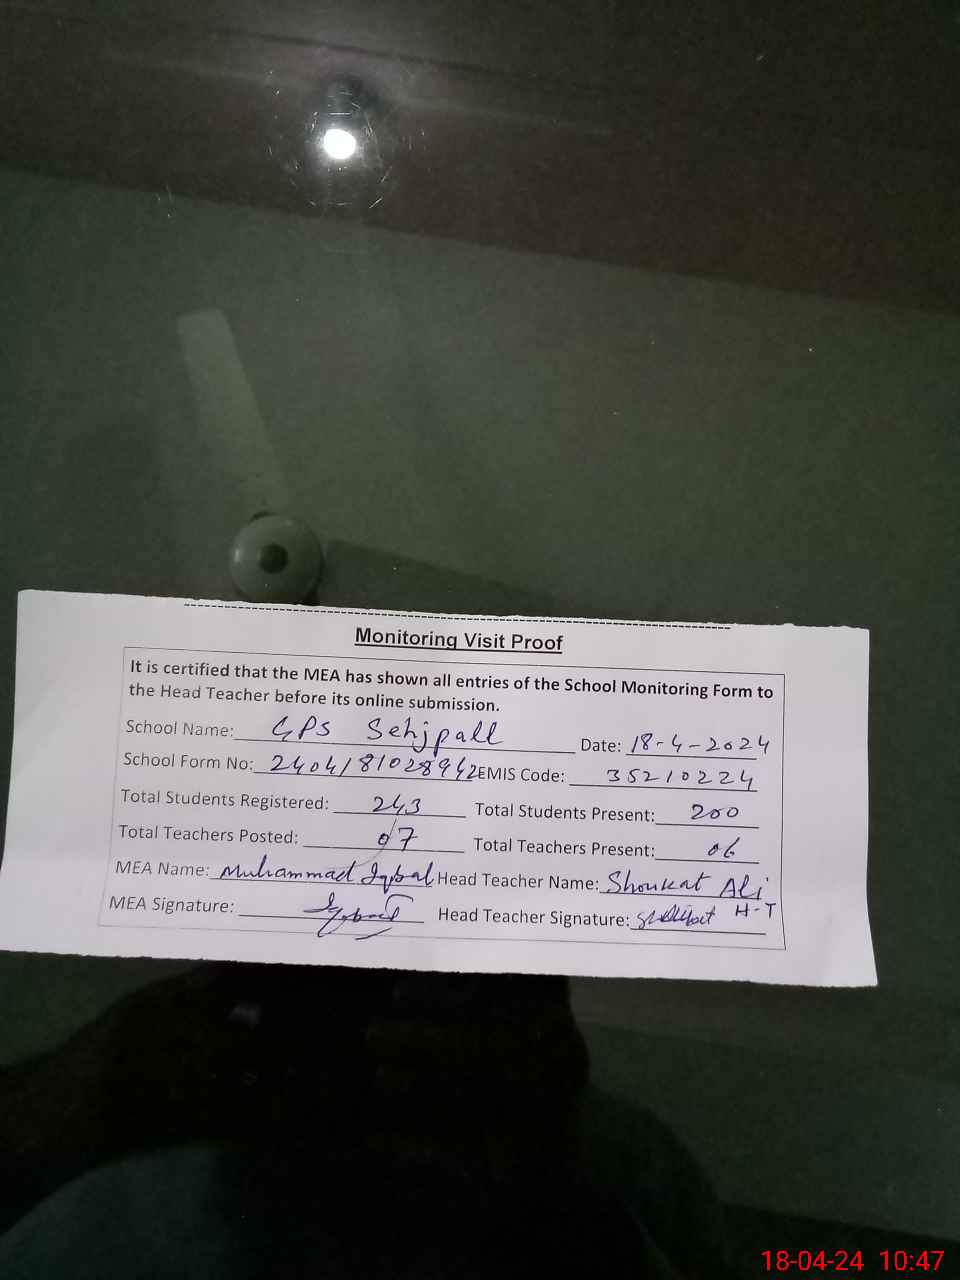 Monitoring Visit Proof
It is certified that the MEA has shown all entries of the School Monitoring Form to
the Head Teacher before its online submission.
School Name: GPS Sehjpall Date: 18-4-2024
School Form No: 2404181028942 EMIS Code: 35210224
Total Students Registered: 243 Total Students Present: 200
Total Teachers Posted: 07 Total Teachers Present: 06
MEA Name: Muhammad Iqbal Head Teacher Name: Shoukat Ali
MEA Signature: Iqbal Head Teacher Signature: Shoukat H-T
18-04-24 10:47